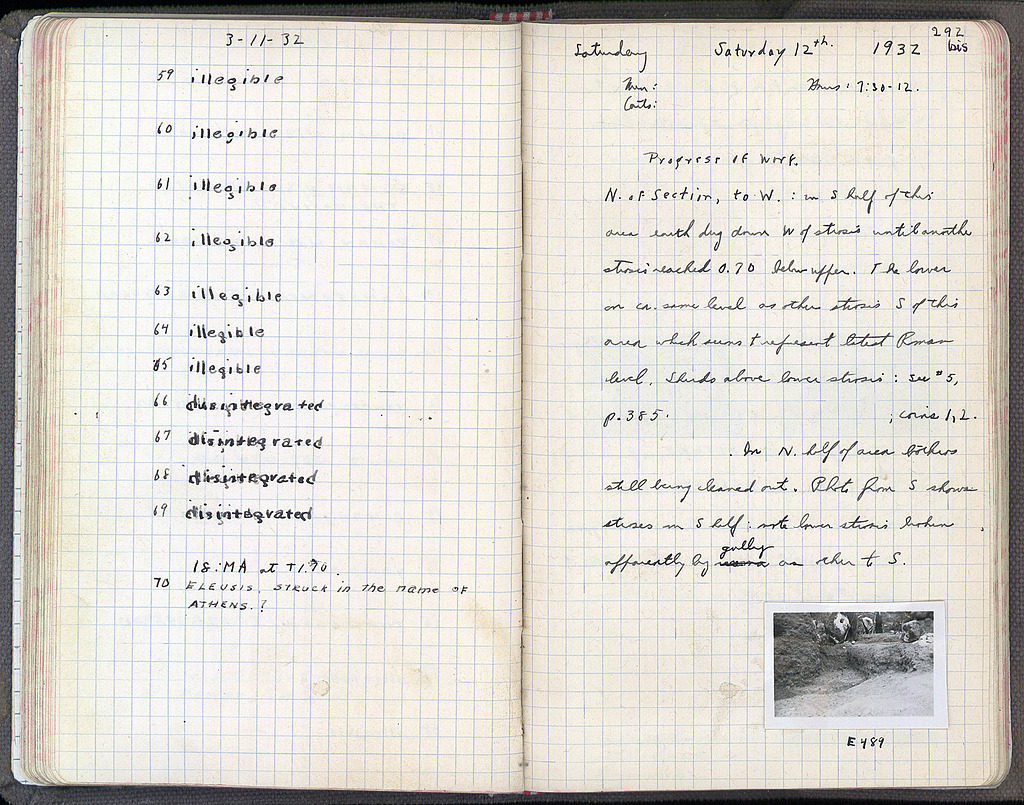 3-11-32
59 illegible
60 illegible
61 illegible
62 illegible
63 illegible
64 illegible
65 illegible
66 disintegrated
67 disintegrated
68 disintegrated
69 disintegrated
18:MA at +1.70.
70 ELEUSIS, STRUCK in the name OF
ATHENS.?
292
bis
Saturday Saturday 12th. 1932
Men: Hours: 7:30-12.
Carts:
Progress of Work.
N. of Section, to W. : in S half of this
area earth dug down W of strosis until another
strosis reached 0.70 below upper. The lower
on ca. same level as other strosis S of this
area which seems t represent latest Roman
level. Sherds above lower strosis : see #5,
p. 385. ; coins 1, 2.
. In N. half of area bothros
still being cleaned out. Photo from S shows
stroses in S half : note lower strosis broken
gully
apparently by as other t S.
E 489